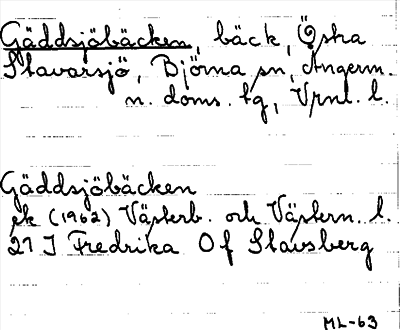 Gäddsjöbäcken, bäck, Östra
Stavarsjö, Björna sn, Ångerm.
n. doms. tg, Vrnl. l.
Gäddsjöbäcken
ek (1962) Västerb. och Västern. l.
21 J Fredrika Of Stavsberg
ML-63